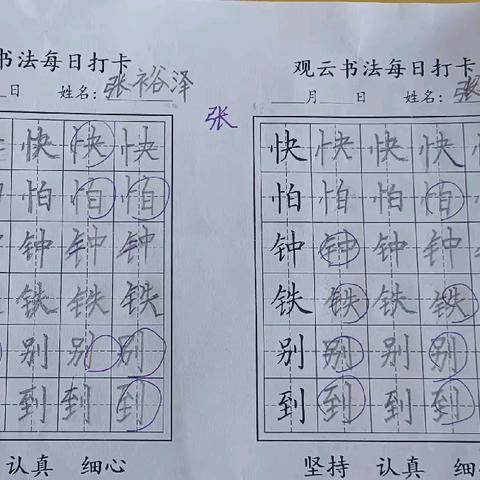 书法每日打卡
日 姓名：张裕泽
快 快 快
怕 怕 怕
钟 钟 钟
铁 铁 铁
别 别 别
到 到 到
认真 细心
张
观云书法每日打卡
月 日 姓名：张
快 快 快 快
怕 怕 怕 怕
钟 钟 钟 钟
铁 铁 铁 铁
别 别 别 别
到 到 到 到
坚持 认真 细